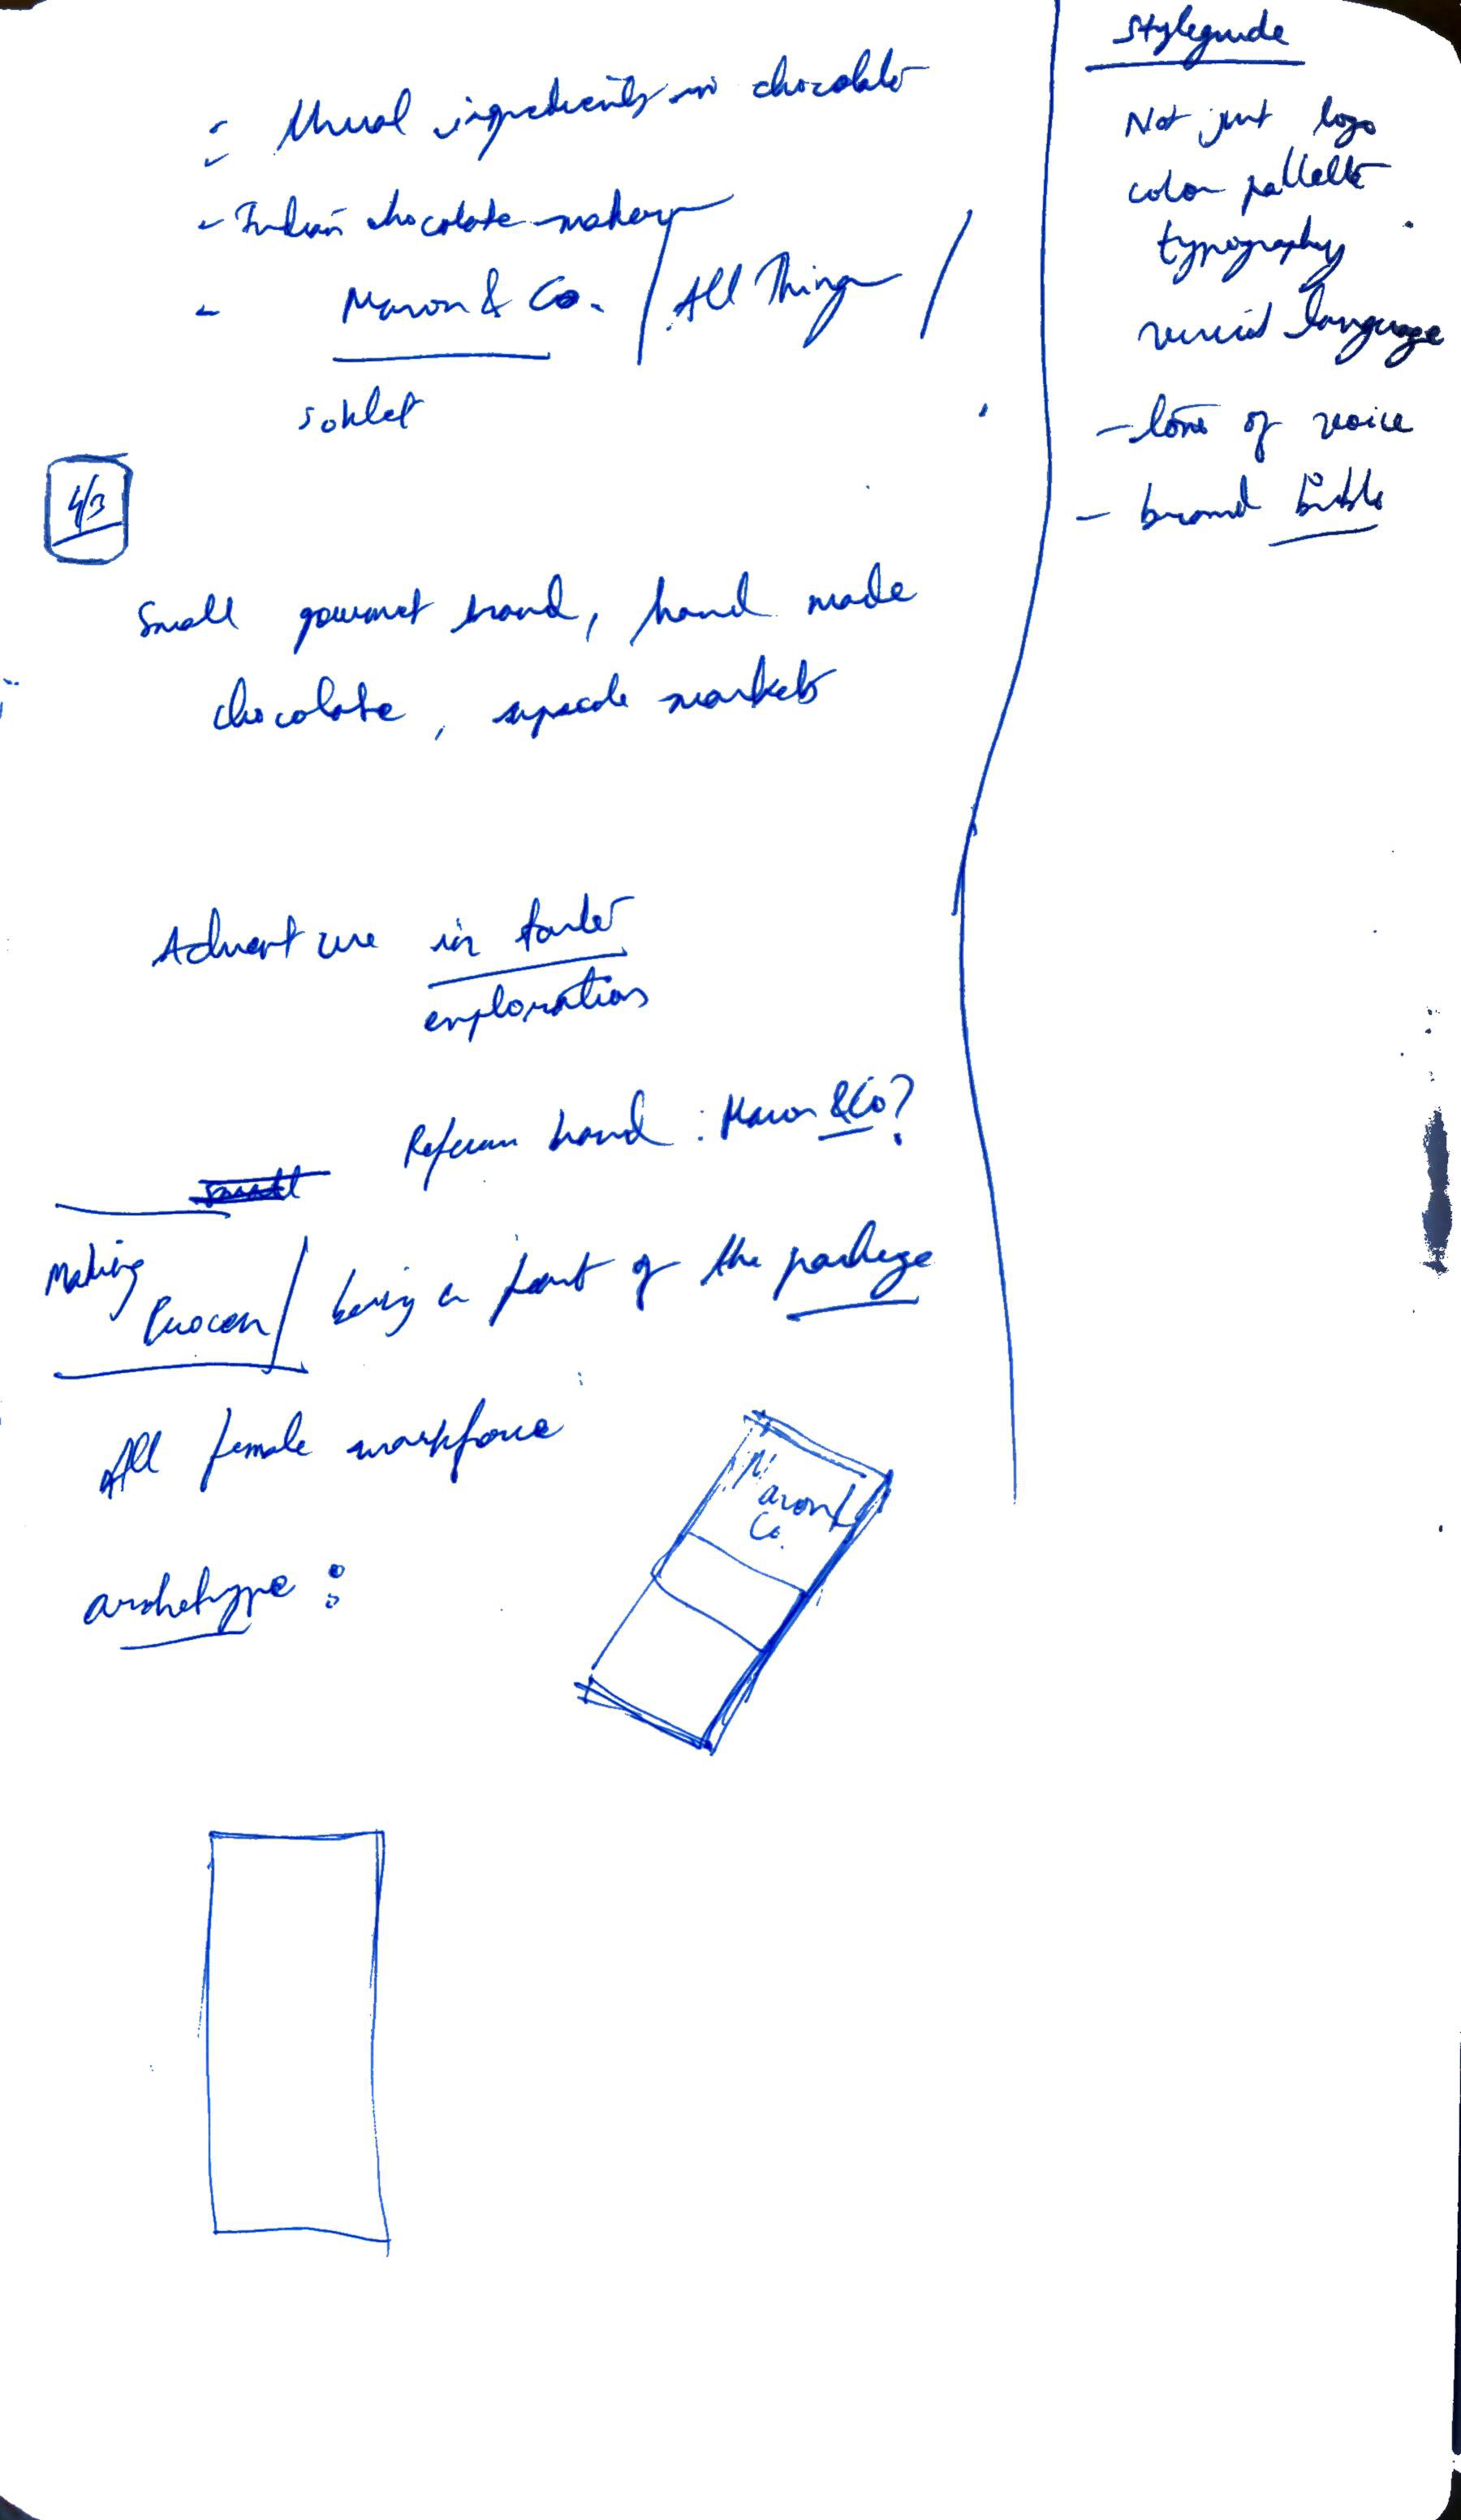 ingredients in chocolate
- Indian chocolate makery
- Mason & Co. / All Things /
4/3
Small gourmet brand, hand made
chocolate, upscale markets
Adventure in taste
exploration
brand : Mason &Co?
Making
Process / being a part of the package
All female workforce
archetype :
Mason &
Co.
Styleguide
Not just logo
color pallette
typography
language
- tone of voice
- brand bible